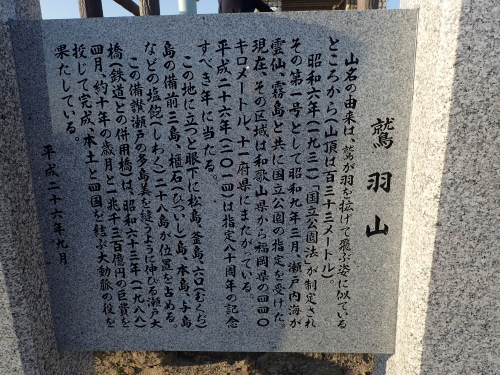 鷲羽山
山名の由来は、鷲が羽を拡げて飛ぶ姿に似ている
ところから(山頂は百三十三メートル)。
昭和六年(一九三一)「国立公園法」が制定され
その第一号として昭和九年三月、瀬戸内海が
雲仙、霧島と共に国立公園の指定を受けた。
現在、その区域は和歌山県から福岡県の四四〇
キロメートル、十一府県にまたがっている。
平成二十六年(二〇一四)は指定八十周年の記念
すべき年に当たる。
この地に立つと眼下に松島、釜島、六口(むくち)
島の備前三島、櫃石(ひついし)島、本島、与島
などの塩飽(しわく)二十八島が位置を占める。
この備讃瀬戸の多島美を縫うように伸びる瀬戸大
橋(鉄道との併用橋)は、昭和六十三年(一九八八)
四月、約十年の歳月と一兆千三百億円の巨費を
投じて完成、本土と四国を結ぶ大動脈の役を
果たしている。
平成二十六年九月